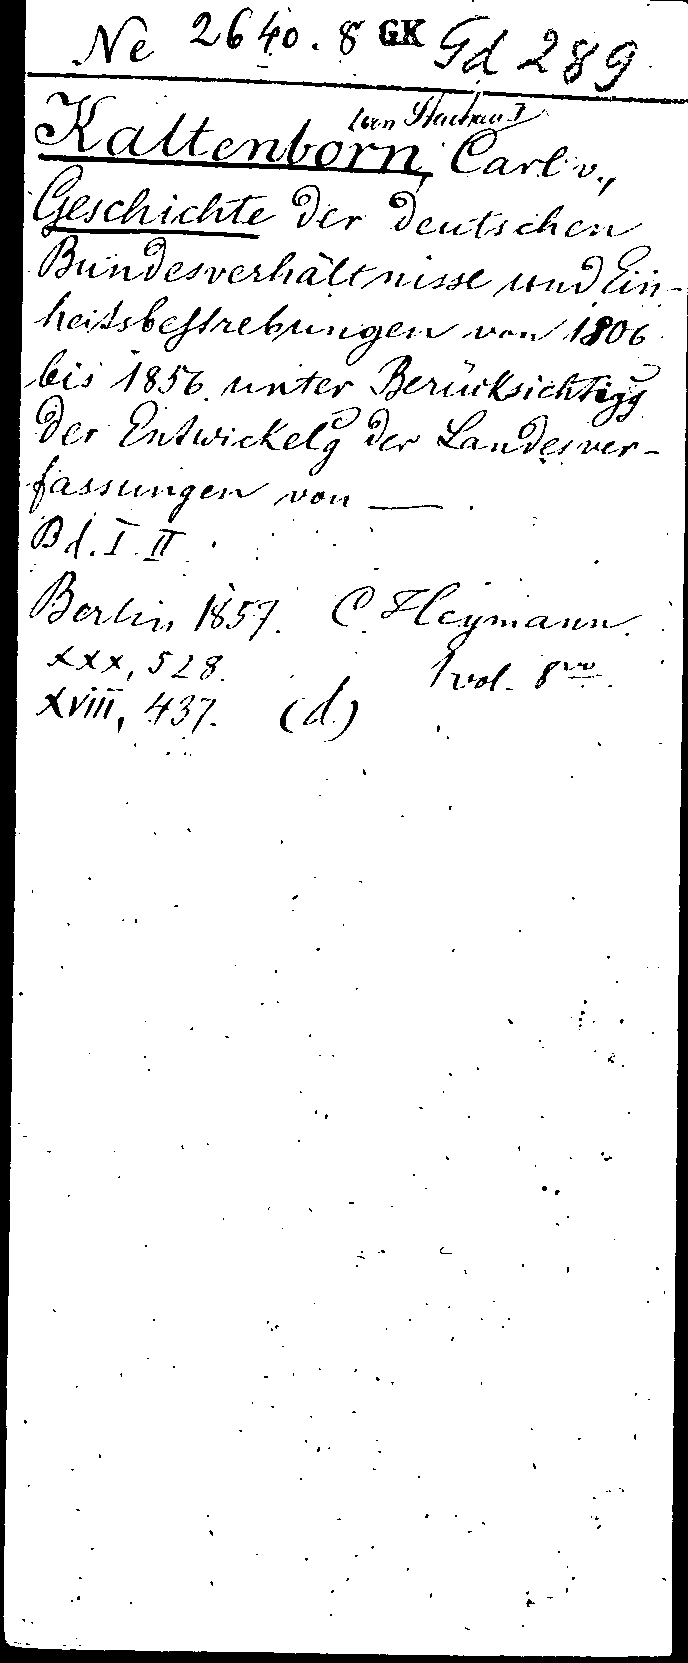 Ne 2640.8 GK Gd 289
[von Stachau]
Kaltenborn, Carl v.,
Geschichte der deutschen
Bundesverhältnisse und Ein-
heitsbestrebungen von 1806
bis 1856 unter Berücksichtigg
der Entwickelg der Landesver-
fassungen von —.
Bd. I. II.
Berlin 1857. C. Heymann.
xxx, 528. 1 vol. 8vo.
xviii, 437. (d.)